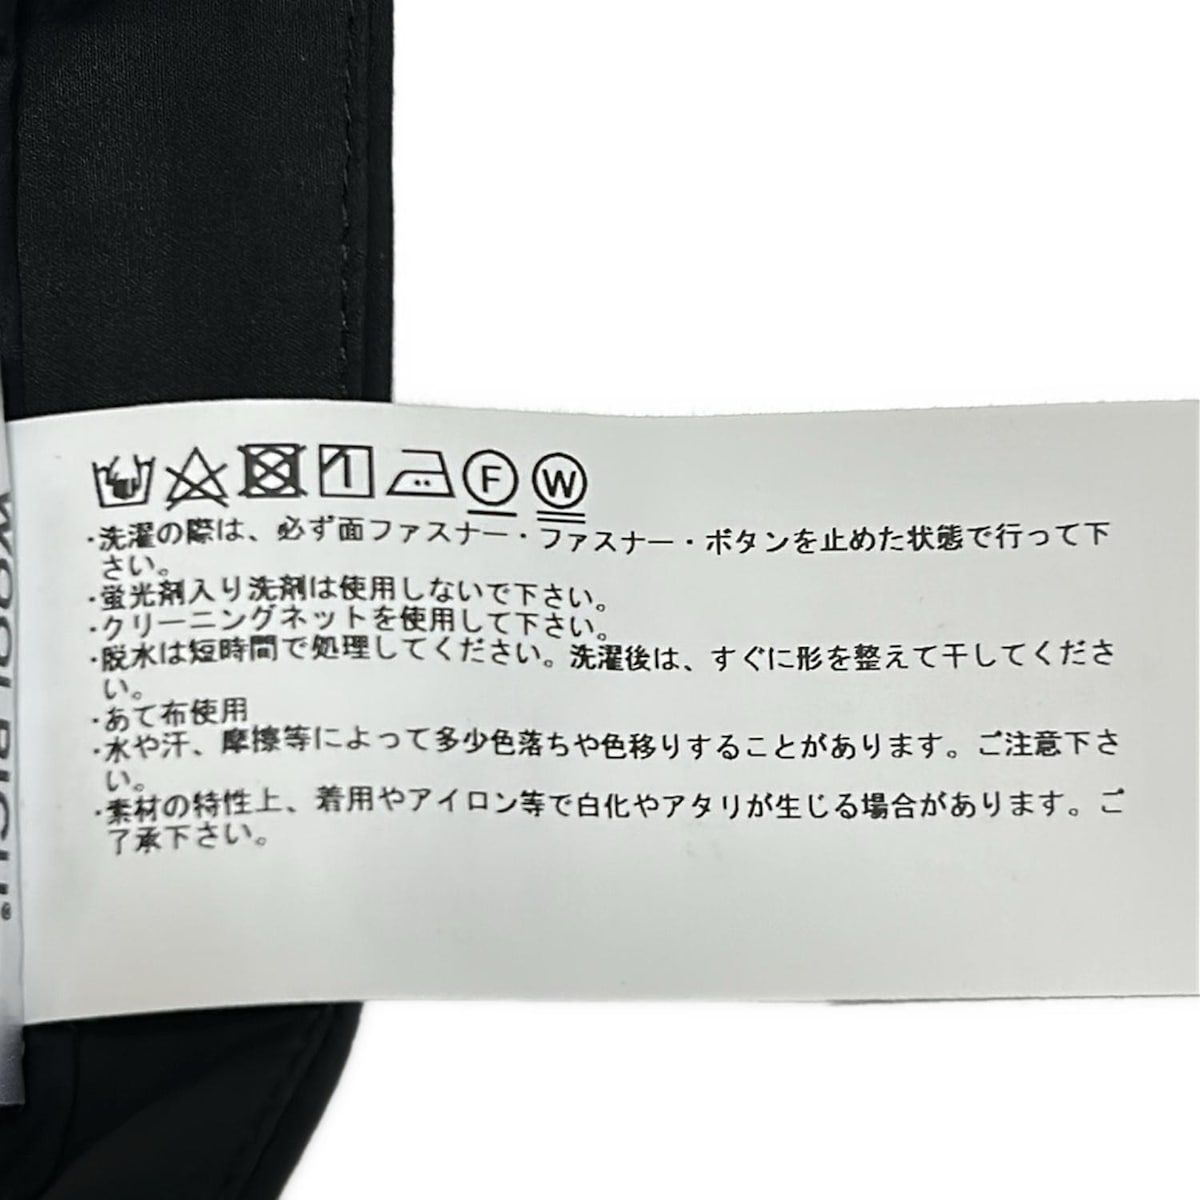 F W
・洗濯の際は、必ず面ファスナー・ファスナー・ボタンを止めた状態で行って下
さい。
・蛍光剤入り洗剤は使用しないで下さい。
・クリーニングネットを使用して下さい。
・脱水は短時間で処理してください。洗濯後は、すぐに形を整えて干してくださ
い。
・あて布使用
・水や汗、摩擦等によって多少色落ちや色移りすることがあります。ご注意下さ
い。
・素材の特性上、着用やアイロン等で白化やアタリが生じる場合があります。ご
了承下さい。
WOOLRICH®